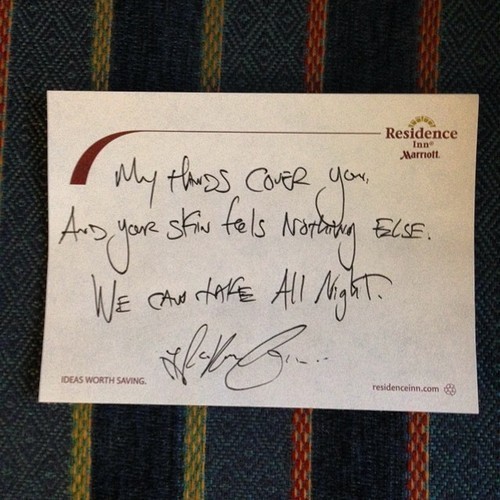 Residence
Inn®
Marriott.
My HANDS COVER you,
AND your SKIN feels NOTHING ELSE.
WE CAN TAKE All Night.
IDEAS WORTH SAVING.
residenceinn.com